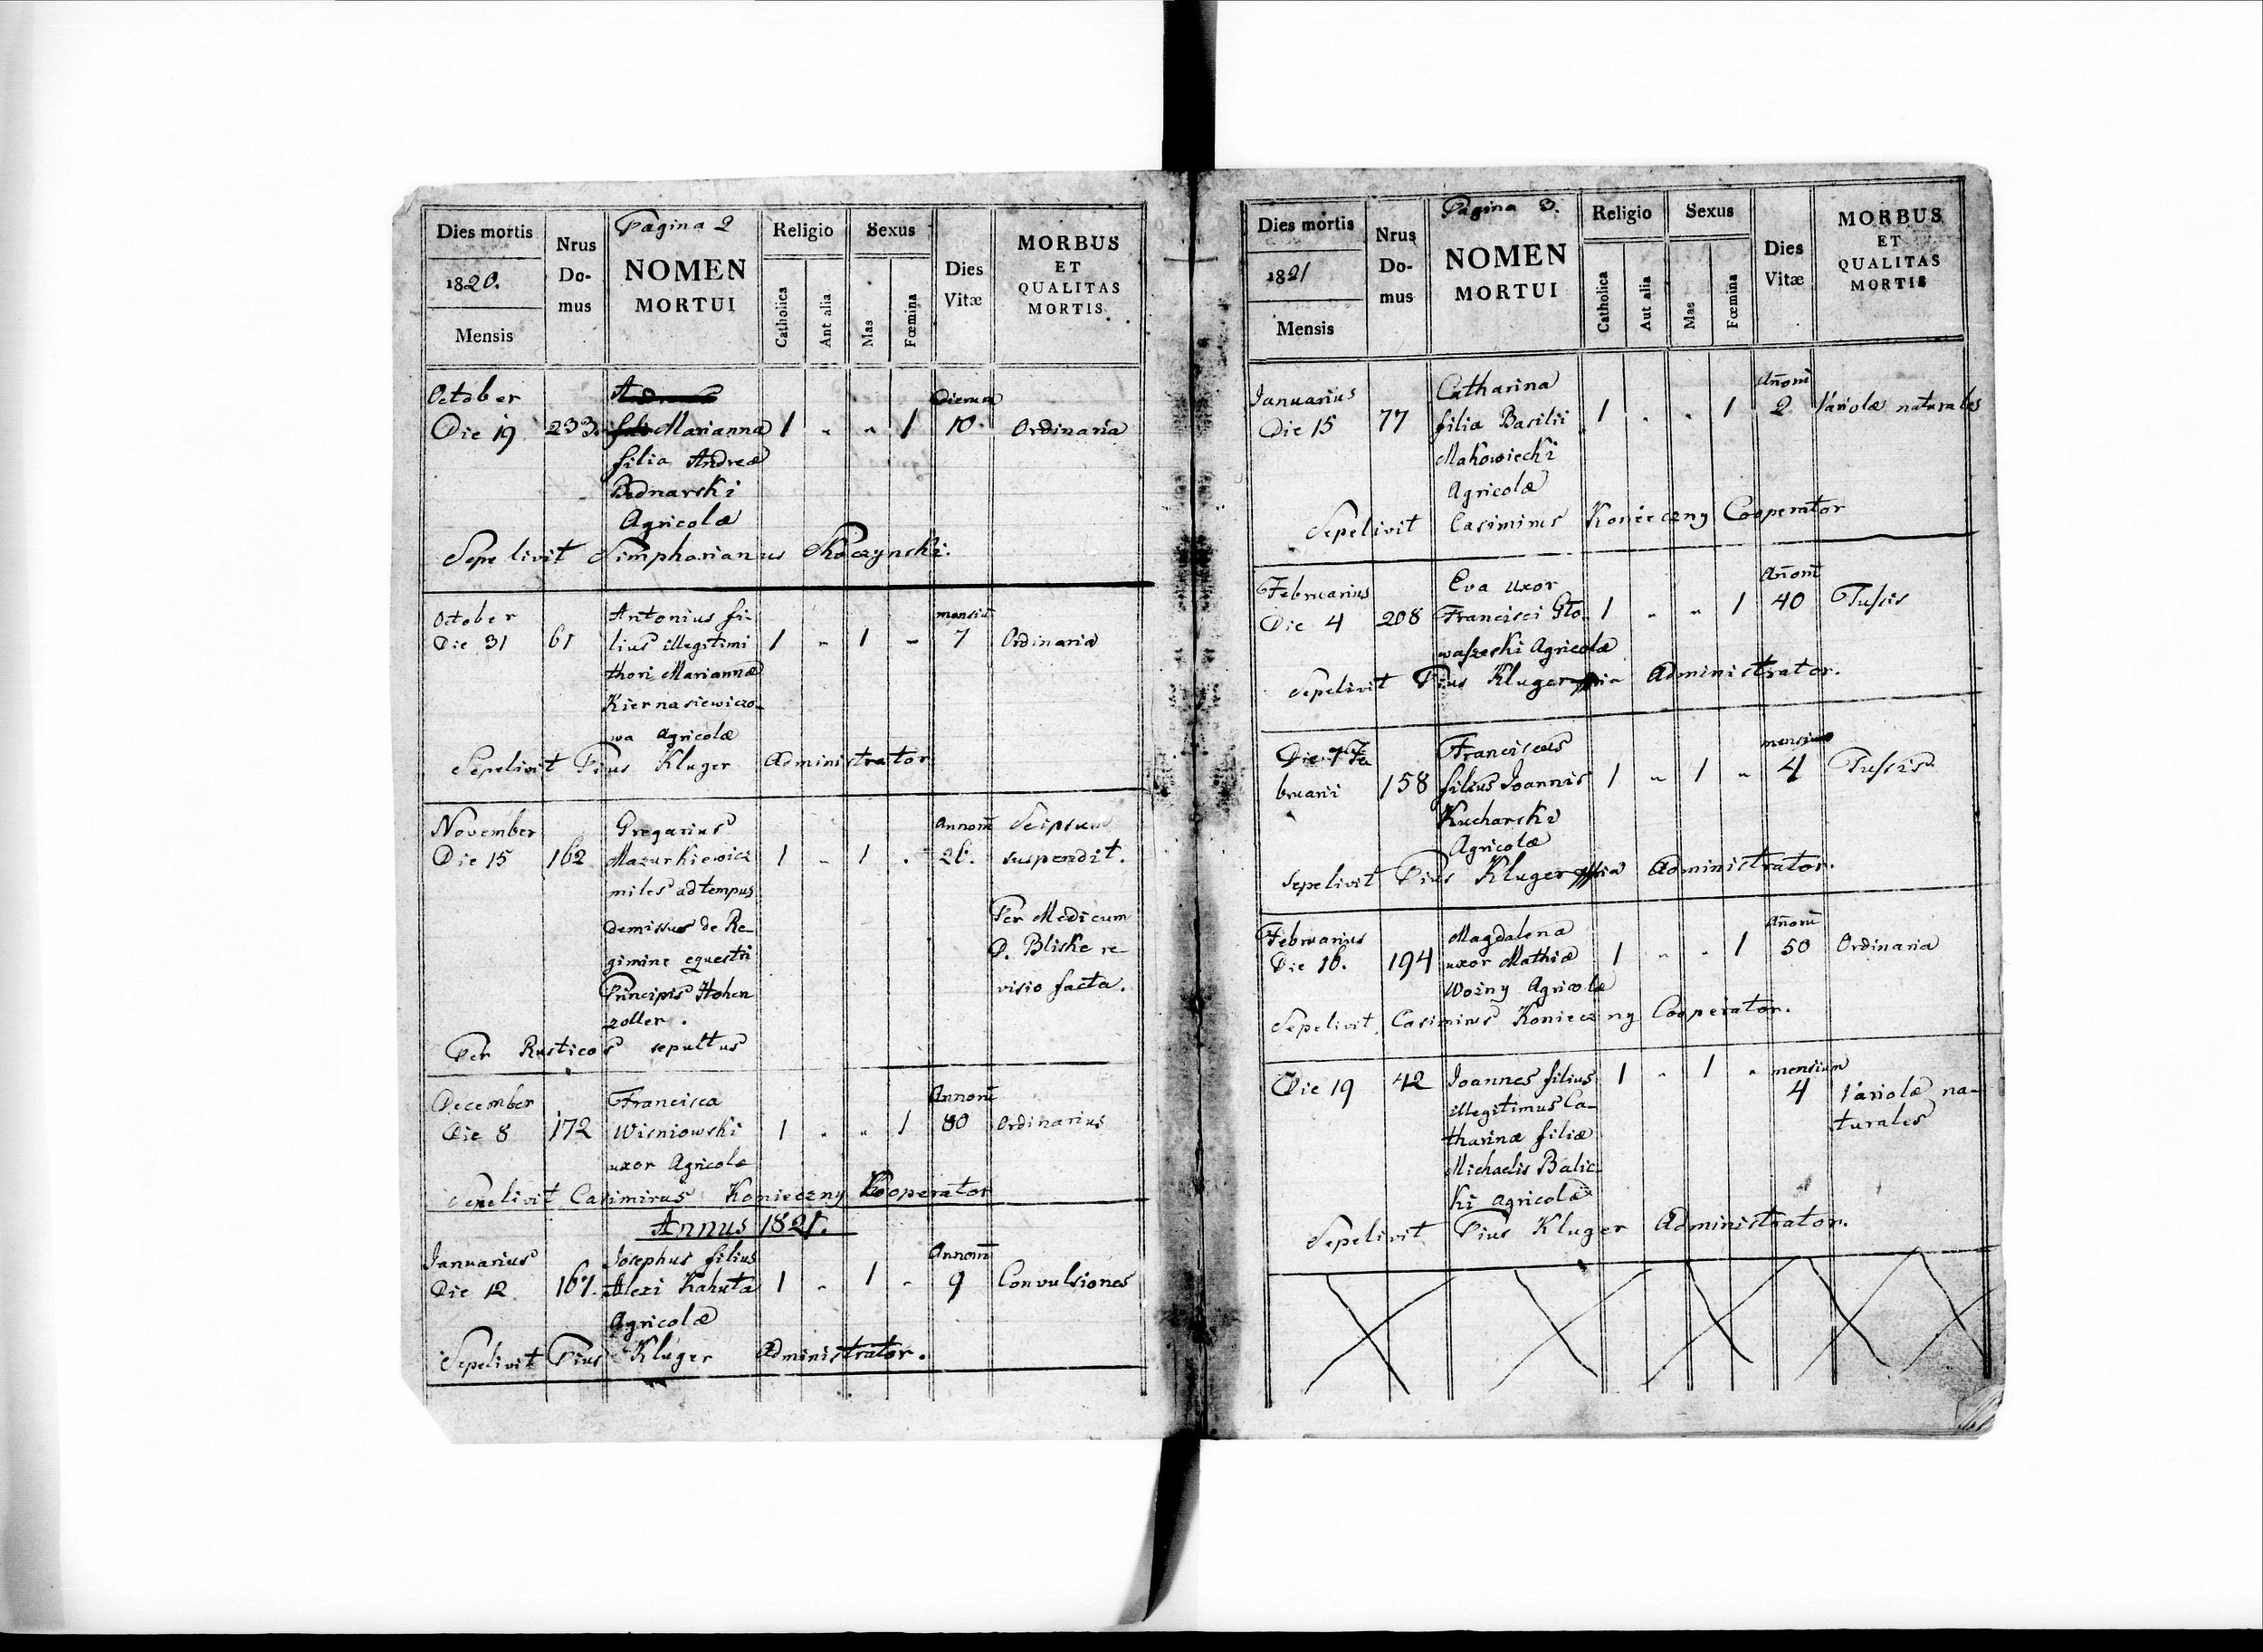 Pagina 2
Dies mortis
1820.
Mensis
Nrus Domus
NOMEN
MORTUI
Religio
Catholica
Aut alia
Sexus
Mas
Fœmina
Dies Vitæ
MORBUS
ET
QUALITAS
MORTIS.
October dierum
Die 19 233. Marianna 1 " " 1 10. Ordinaria
filia Andreæ
Bednarski
Agricolæ
Sepelivit Simphorianus
October Antonius fi- mensiū
Die 31 61 lius illegitimi 1 " 1 " 7 Ordinaria
thori Mariannæ
Kiernasiewiczo-
wa Agricolæ
Sepelivit Pius Kluger Administrator
November Gregorius Annorū Seipsum
Die 15 162 Mazurkiewicz 1 " 1 . 26. suspendit.
miles ad tempus
demissus de Re- Per Medicum
gimine equestri D. Bliske re-
Principis Hohen visio facta.
zoller.
Per Rusticos sepultus
December Francisca Annorū
Die 8 172 Wisniowski 1 . " 1 80 Ordinarius
uxor Agricolæ
Sepelivit Casimirus Konieczny Cooperator
Annus 1821.
Januarius Josephus filius Annorū
Die 12 167. Alexi Kahuta 1 " 1 " 9 Convulsiones
Agricolæ
Sepelivit Pius Kluger Administrator.
Pagina 3.
Dies mortis
1821
Mensis
Nrus Domus
NOMEN
MORTUI
Religio
Catholica
Aut alia
Sexus
Mas
Fœmina
Dies Vitæ
MORBUS
ET
QUALITAS
MORTIS
Januarius Catharina Añorū
Die 15 77 filia Basilii 1 . " 1 2 Variolæ naturales
Makowiecki
Agricolæ
Sepelivit Casimirus Konieczny Cooperator
Februarius Eva uxor Añorū
Die 4 208 Francisci Gło- 1 " " 1 40 Tussis
waszeski Agricolæ
Sepelivit Pius Kluger Administrator.
Die 7 Fe Franciscus mensium
bruarii 158 filius Joannis 1 " 1 " 4 Tussis
Kucharski
Agricolæ
Sepelivit Pius Kluger Administrator.
Februarius Magdalena Añorū
Die 16. 194 uxor Mathiæ 1 " " 1 50 Ordinaria
Wozny Agricolæ
Sepelivit Casimirus Konieczny Cooperator.
Die 19 42 Joannes filius 1 " 1 " mensium
illegitimus Ca- 4 Variolæ na-
tharinæ filiæ turales
Michaelis Balic-
ki agricolæ
Sepelivit Pius Kluger Administrator.